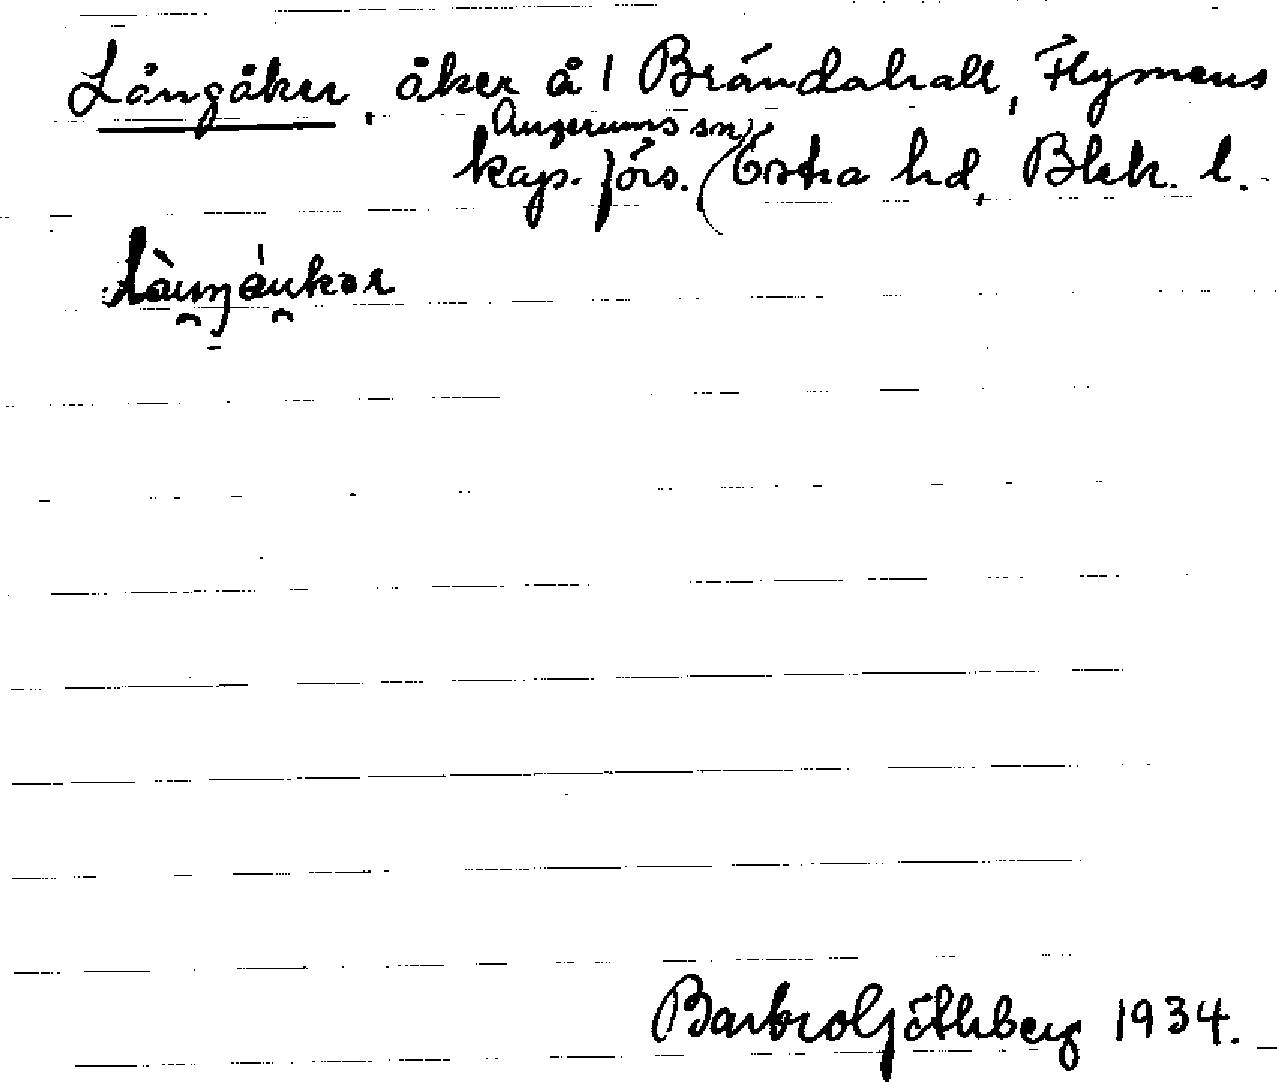 Långåker, åker å 1 Brändahall, Flymens
Augerums sn)
kap. förs. (Östra hd, Blek. l.
Barbro Göthberg 1934.